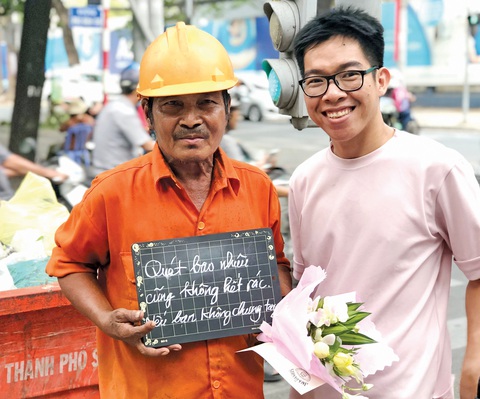 Quét bao nhiêu
cũng không hết rác.
Nếu bạn không chung tay
THÀNH PHỐ S